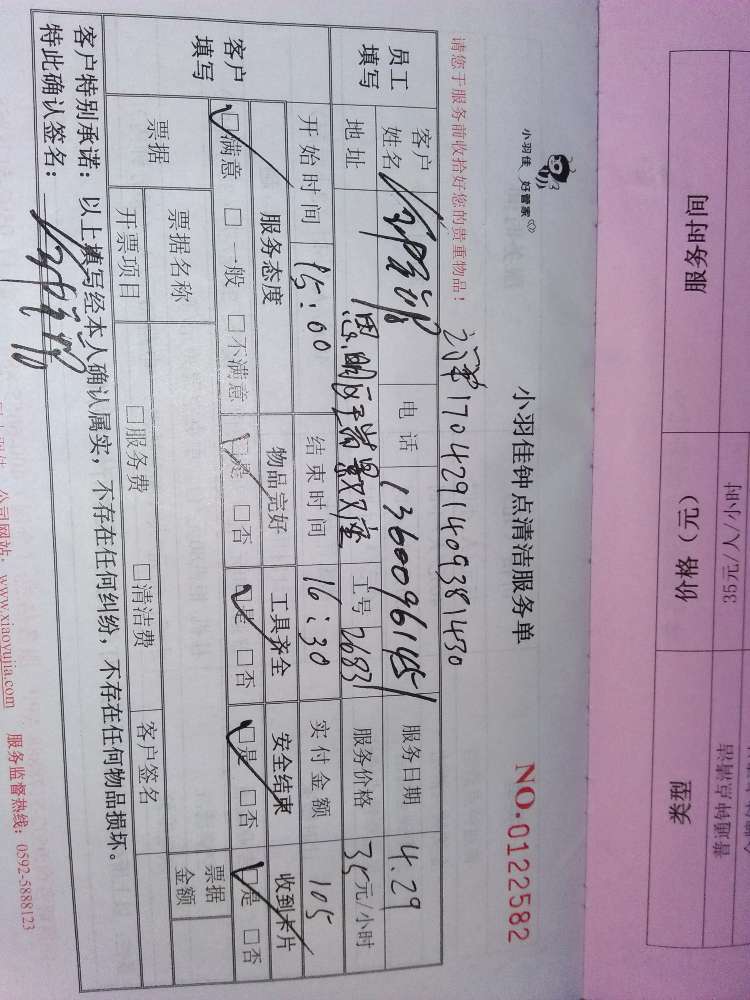 服务时间 价格（元） 类型
35元/人/小时 普通钟点清洁
小羽佳 好管家
小羽佳钟点清洁服务单
NO.0122582
请您于服务前收拾好您的贵重物品！
1704291409381430
员工填写
客户姓名 电话 13600961451 服务日期 4.29
地址 思明区 工号 26831 服务价格 35元/小时
开始时间 15:00 结束时间 16:30 实付金额 105
客户填写
服务态度 物品完好 工具齐全 安全结束 收到卡片
☑满意 □一般 □不满意 ☑是 □否 ☑是 □否 ☑是 □否 ☑是 □否
票据 票据名称 票据金额
开票项目 □服务费 □清洁费 客户签名
客户特别承诺：以上填写经本人确认属实，不存在任何纠纷，不存在任何物品损坏。
特此确认签名：
公司网站：www.xiaoyujia.com 服务监督热线：0592-5888123